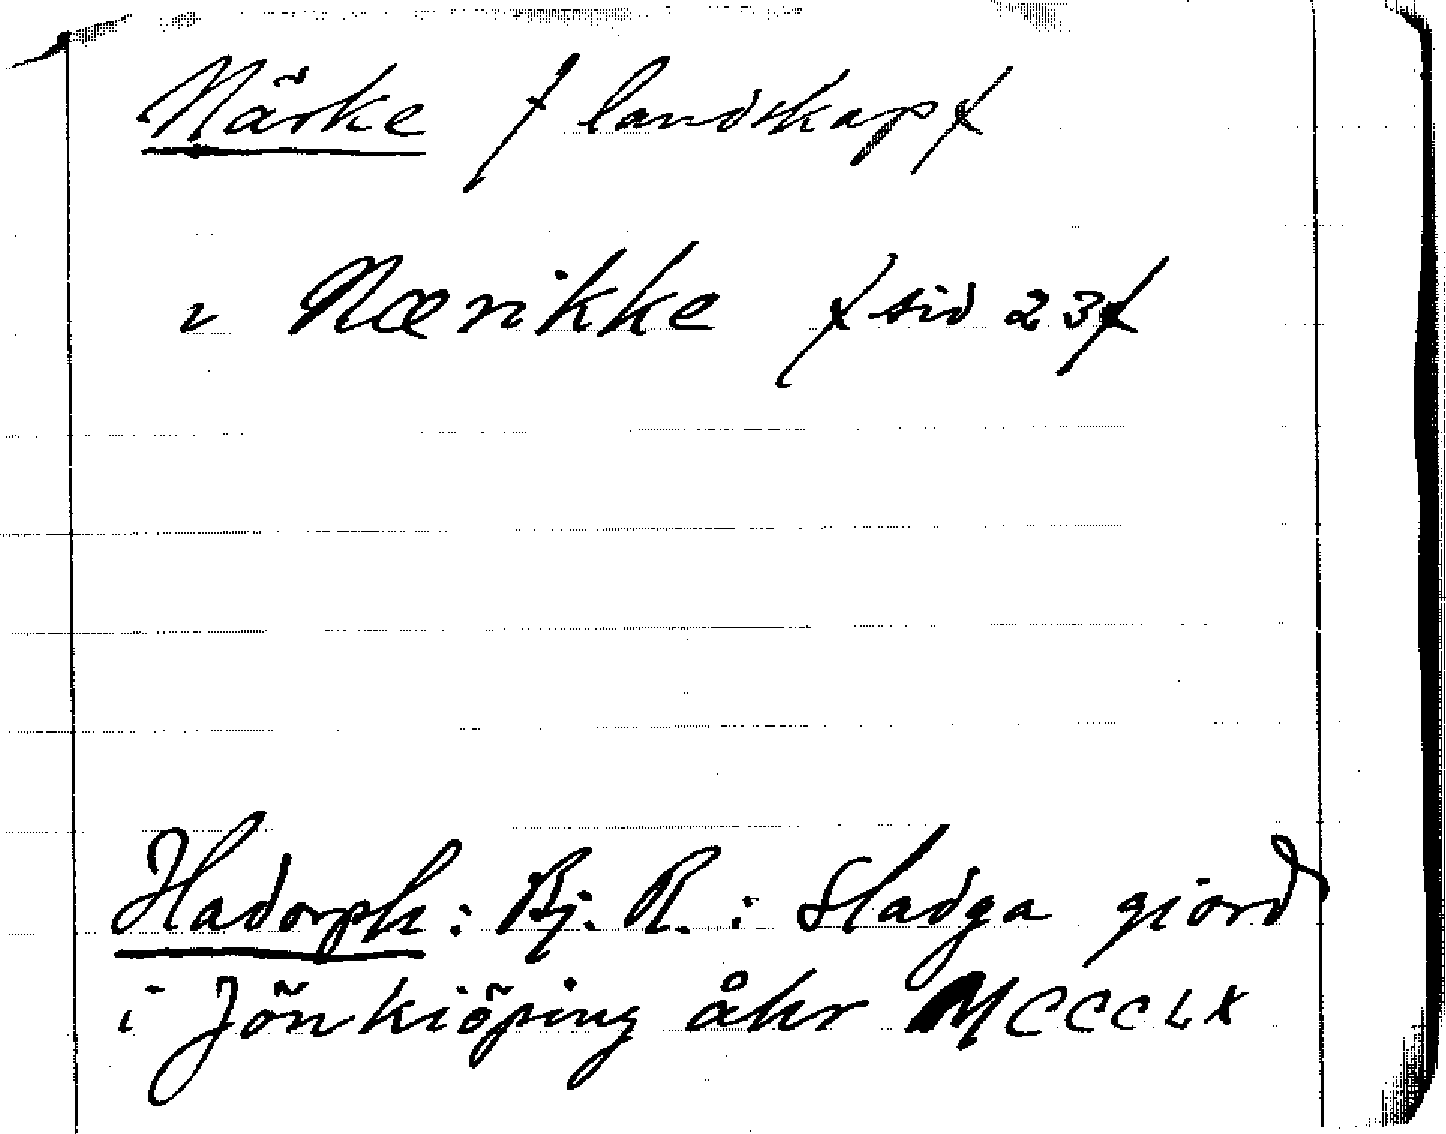 Närke / landskap /
" Nærikke / sid 23 /
Hadorph: Bj. R.: Stadga giord
i Jönkiöping åhr MCCCLX